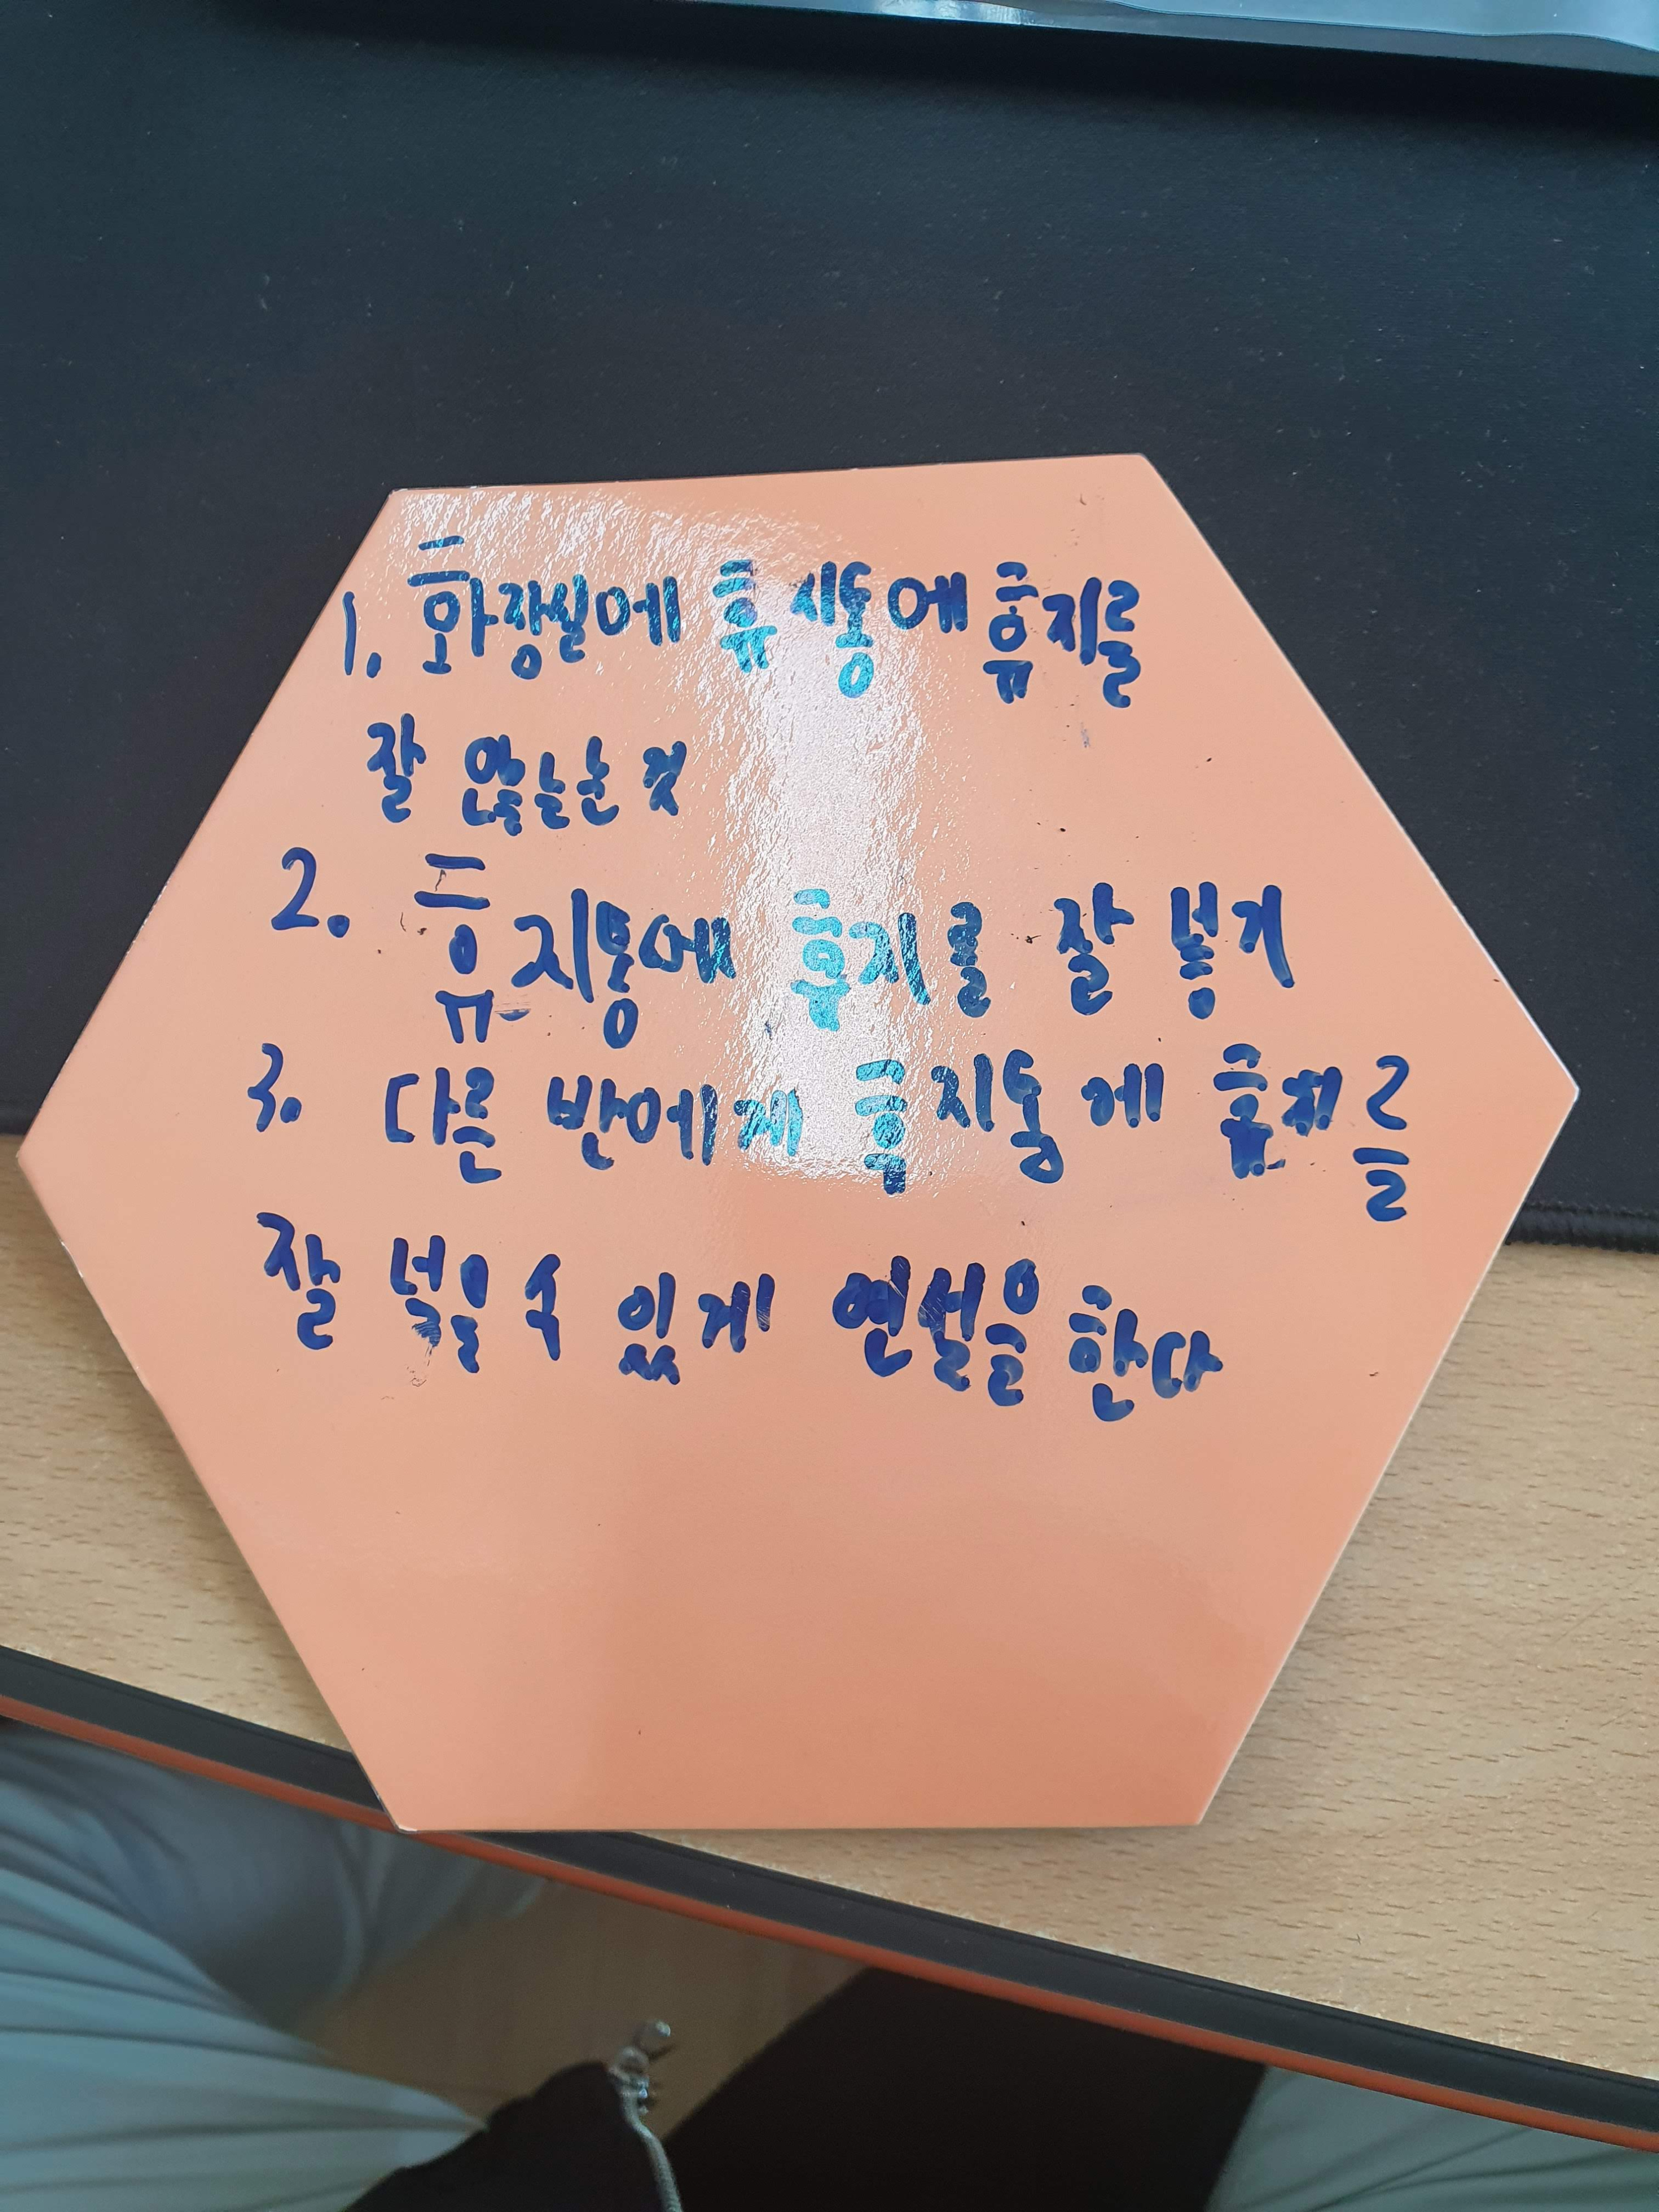 1.화장실에 휴지통에 휴지를
잘 않늘는것
2. 휴지통에 휴지를 잘 넣기
3. 다른 반에게 휴지통에 휴지를
잘 넣을 수 있게 연설을 한다